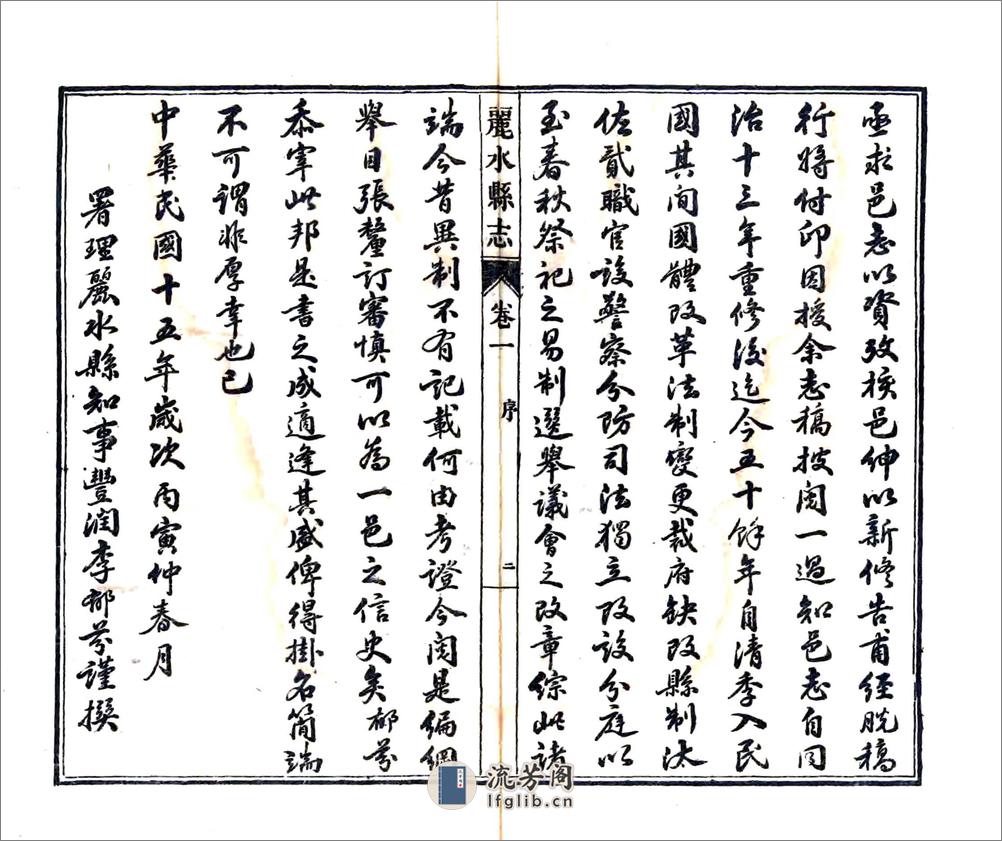 亟求邑志以資攷核邑紳以新修告甫經脫稿
行將付印因授余志稿披閱一過知邑志自同
治十三年重修後迄今五十餘年自清季入民
國其間國體改革法制變更裁府缺改縣制汰
佐貳職官設警察分防司法獨立改設分庭以
至春秋祭祀之易制選舉議會之改章綜此諸
麗水縣志 卷一 序 二
端今昔異制不有記載何由考證今閱是編綱
舉目張釐訂審慎可以為一邑之信史矣郁芬
忝宰此邦是書之成適逢其盛俾得掛名簡端
不可謂非厚幸也已
中華民國十五年歲次丙寅仲春月
署理麗水縣知事豐潤李郁芬謹撰
流芳阁
lfglib.cn